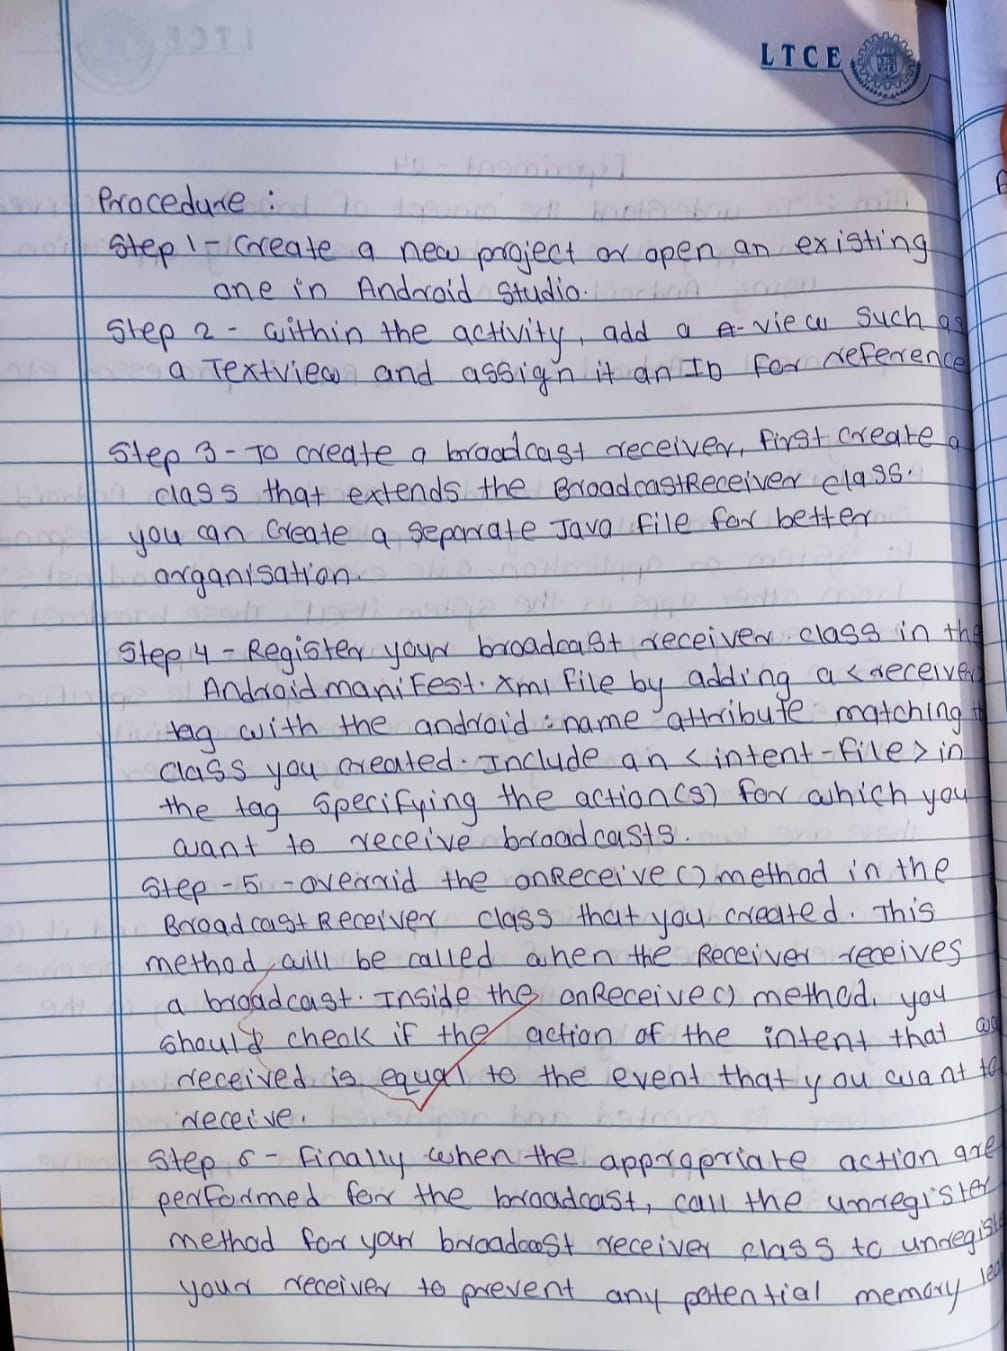 LTCE
Procedure :
Step 1 - Create a new project or open an existing
one in Android Studio.
Step 2 - Within the activity, add a view such as
a Textview and assign it an ID for reference
Step 3 - To create a broadcast receiver, first create a
class that extends the BroadcastReceiver class.
you can create a separate Java file for better
organisation.
Step 4 - Register your broadcast receiver class in the
Androidmanifest.xml file by adding a <receiver>
tag with the android:name attribute matching
class you created. Include an <intent-file> in
the tag specifying the action(s) for which you
want to receive broadcasts.
Step - 5 - overrid the onReceive() method in the
Broadcast Receiver class that you created. This
method will be called when the Receiver receives
a broadcast. Inside the onReceive() method, you
should check if the action of the intent that was
received is equal to the event that you want to
receive.
Step 6 - Finally when the appropriate action are
performed for the broadcast, call the unregister
method for your broadcast receiver class to unregis
your receiver to prevent any potential memory lea